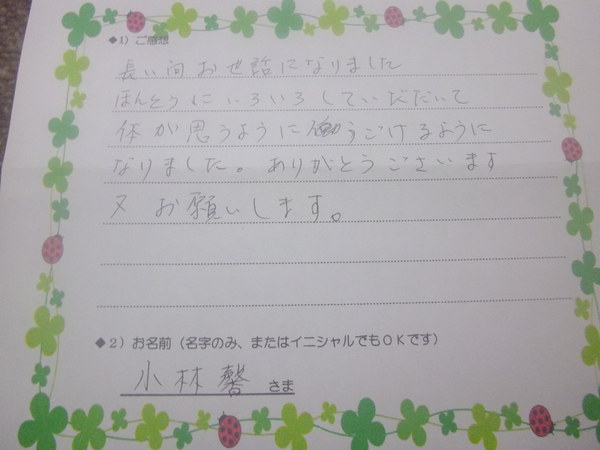 ◆1）ご感想
長い間お世話になりました
ほんとうにいろいろしていただいて
体が思うようにうごけるように
なりました。ありがとうございます
又 お願いします。
◆2）お名前（名字のみ、またはイニシャルでもOKです）
小林馨 さま